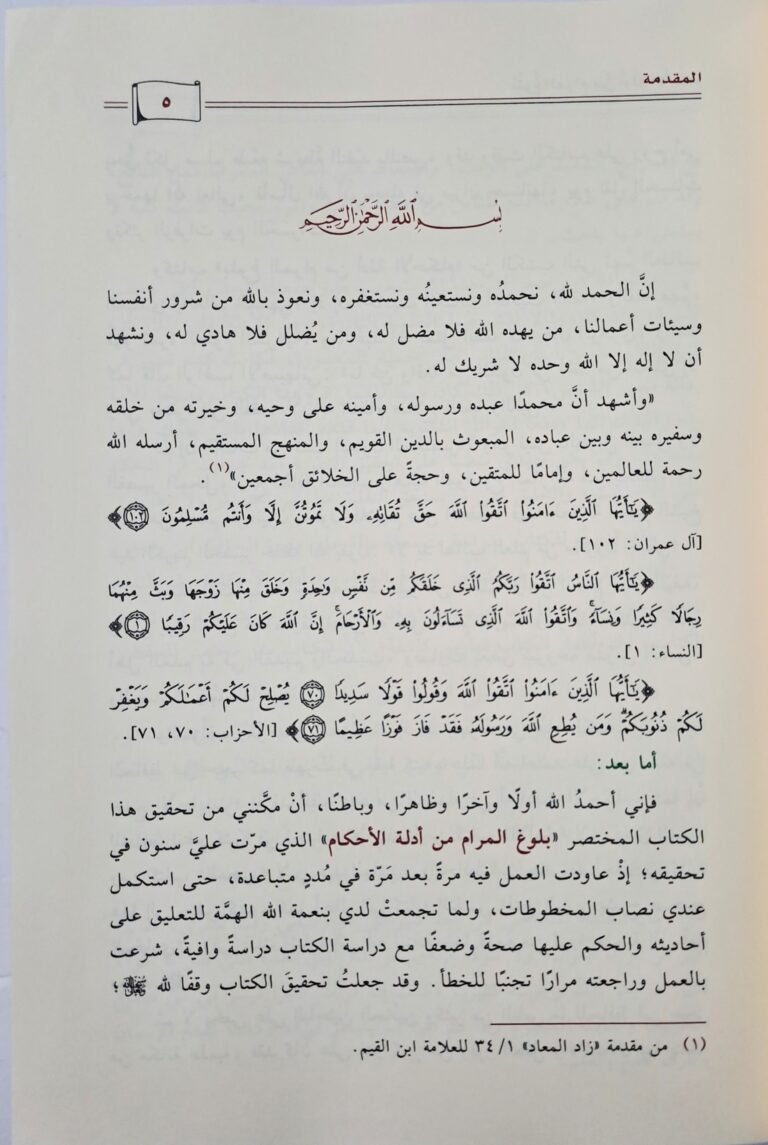 المقدمة
٥
بسم الله الرحمن الرحيم
إنَّ الحمد لله، نحمدُه ونستعينُه ونستغفره، ونعوذ بالله من شرور أنفسنا
وسيئات أعمالنا، من يهده الله فلا مضل له، ومن يُضلل فلا هادي له، ونشهد
أن لا إله إلا الله وحده لا شريك له.
«وأشهد أنَّ محمدًا عبده ورسوله، وأمينه على وحيه، وخيرته من خلقه
وسفيره بينه وبين عباده، المبعوث بالدين القويم، والمنهج المستقيم، أرسله الله
رحمة للعالمين، وإمامًا للمتقين، وحجةً على الخلائق أجمعين»(١).
﴿يَٰٓأَيُّهَا ٱلَّذِينَ ءَامَنُواْ ٱتَّقُواْ ٱللَّهَ حَقَّ تُقَاتِهِۦ وَلَا تَمُوتُنَّ إِلَّا وَأَنتُم مُّسْلِمُونَ ١٠٢﴾
[آل عمران: ١٠٢].
﴿يَٰٓأَيُّهَا ٱلنَّاسُ ٱتَّقُواْ رَبَّكُمُ ٱلَّذِى خَلَقَكُم مِّن نَّفْسٍ وَٰحِدَةٍ وَخَلَقَ مِنْهَا زَوْجَهَا وَبَثَّ مِنْهُمَا
رِجَالًا كَثِيرًا وَنِسَآءً ۚ وَٱتَّقُواْ ٱللَّهَ ٱلَّذِى تَسَآءَلُونَ بِهِۦ وَٱلْأَرْحَامَ ۚ إِنَّ ٱللَّهَ كَانَ عَلَيْكُمْ رَقِيبًا ١﴾
[النساء: ١].
﴿يَٰٓأَيُّهَا ٱلَّذِينَ ءَامَنُواْ ٱتَّقُواْ ٱللَّهَ وَقُولُواْ قَوْلًا سَدِيدًا ٧٠ يُصْلِحْ لَكُمْ أَعْمَٰلَكُمْ وَيَغْفِرْ
لَكُمْ ذُنُوبَكُمْ ۗ وَمَن يُطِعِ ٱللَّهَ وَرَسُولَهُۥ فَقَدْ فَازَ فَوْزًا عَظِيمًا ٧١﴾ [الأحزاب: ٧٠، ٧١].
أما بعد:
فإني أحمدُ الله أولًا وآخرًا وظاهرًا، وباطنًا، أنْ مكَّنني من تحقيق هذا
الكتاب المختصر «بلوغ المرام من أدلة الأحكام» الذي مرّت عليَّ سنون في
تحقيقه؛ إذْ عاودت العمل فيه مرةً بعد مَرّة في مُددٍ متباعدة، حتى استكمل
عندي نصاب المخطوطات، ولما تجمعتْ لدي بنعمة الله الهمَّة للتعليق على
أحاديثه والحكم عليها صحةً وضعفًا مع دراسة الكتاب دراسةً وافيةً، شرعت
بالعمل وراجعته مرارًا تجنبًا للخطأ. وقد جعلتُ تحقيقَ الكتاب وقفًا لله ؛
(١) من مقدمة «زاد المعاد» ٣٤/١ للعلامة ابن القيم.